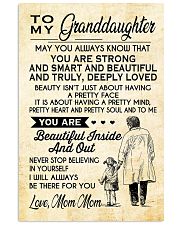 TO
MY Granddaughter
MAY YOU ALWAYS KNOW THAT
YOU ARE STRONG
AND SMART AND BEAUTIFUL
AND TRULY, DEEPLY LOVED
BEAUTY ISN'T JUST ABOUT HAVING
A PRETTY FACE
IT IS ABOUT HAVING A PRETTY MIND,
PRETTY HEART AND PRETTY SOUL AND TO ME
YOU ARE
Beautiful Inside
And Out
NEVER STOP BELIEVING
IN YOURSELF
I WILL ALWAYS
BE THERE FOR YOU
Love, Mom Mom